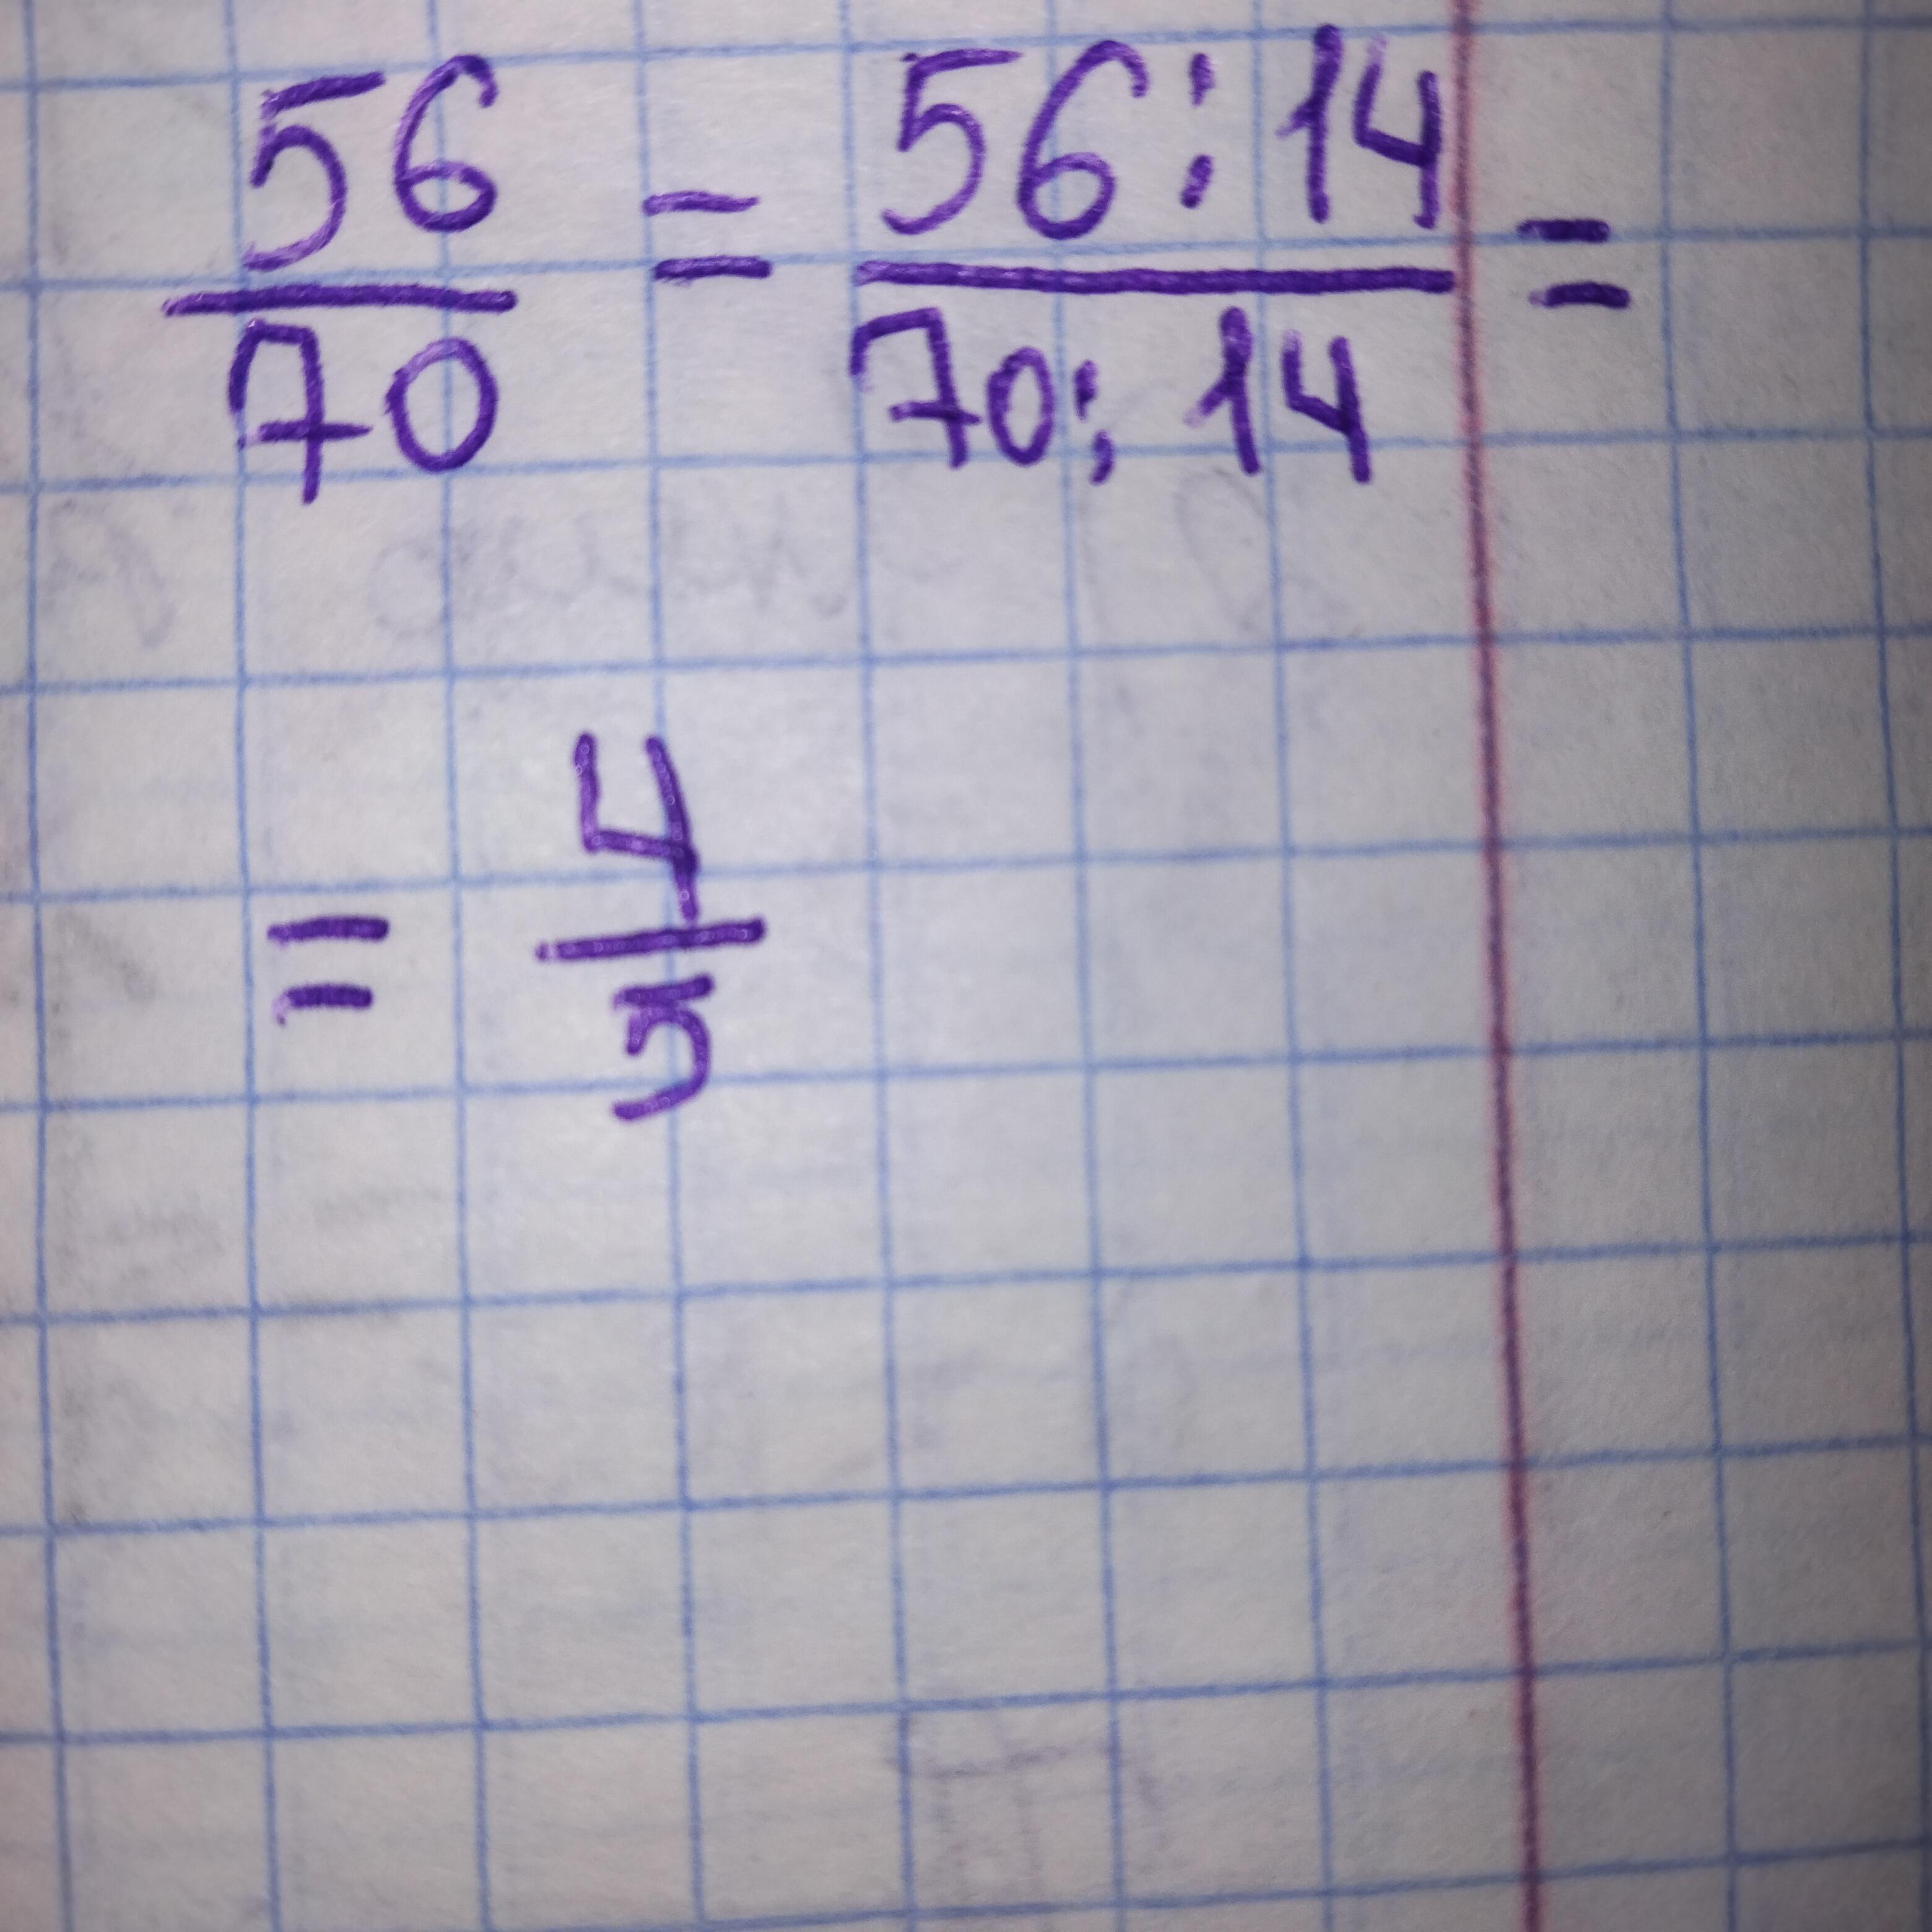 56/70 = 56:14/70:14 =
= 4/5